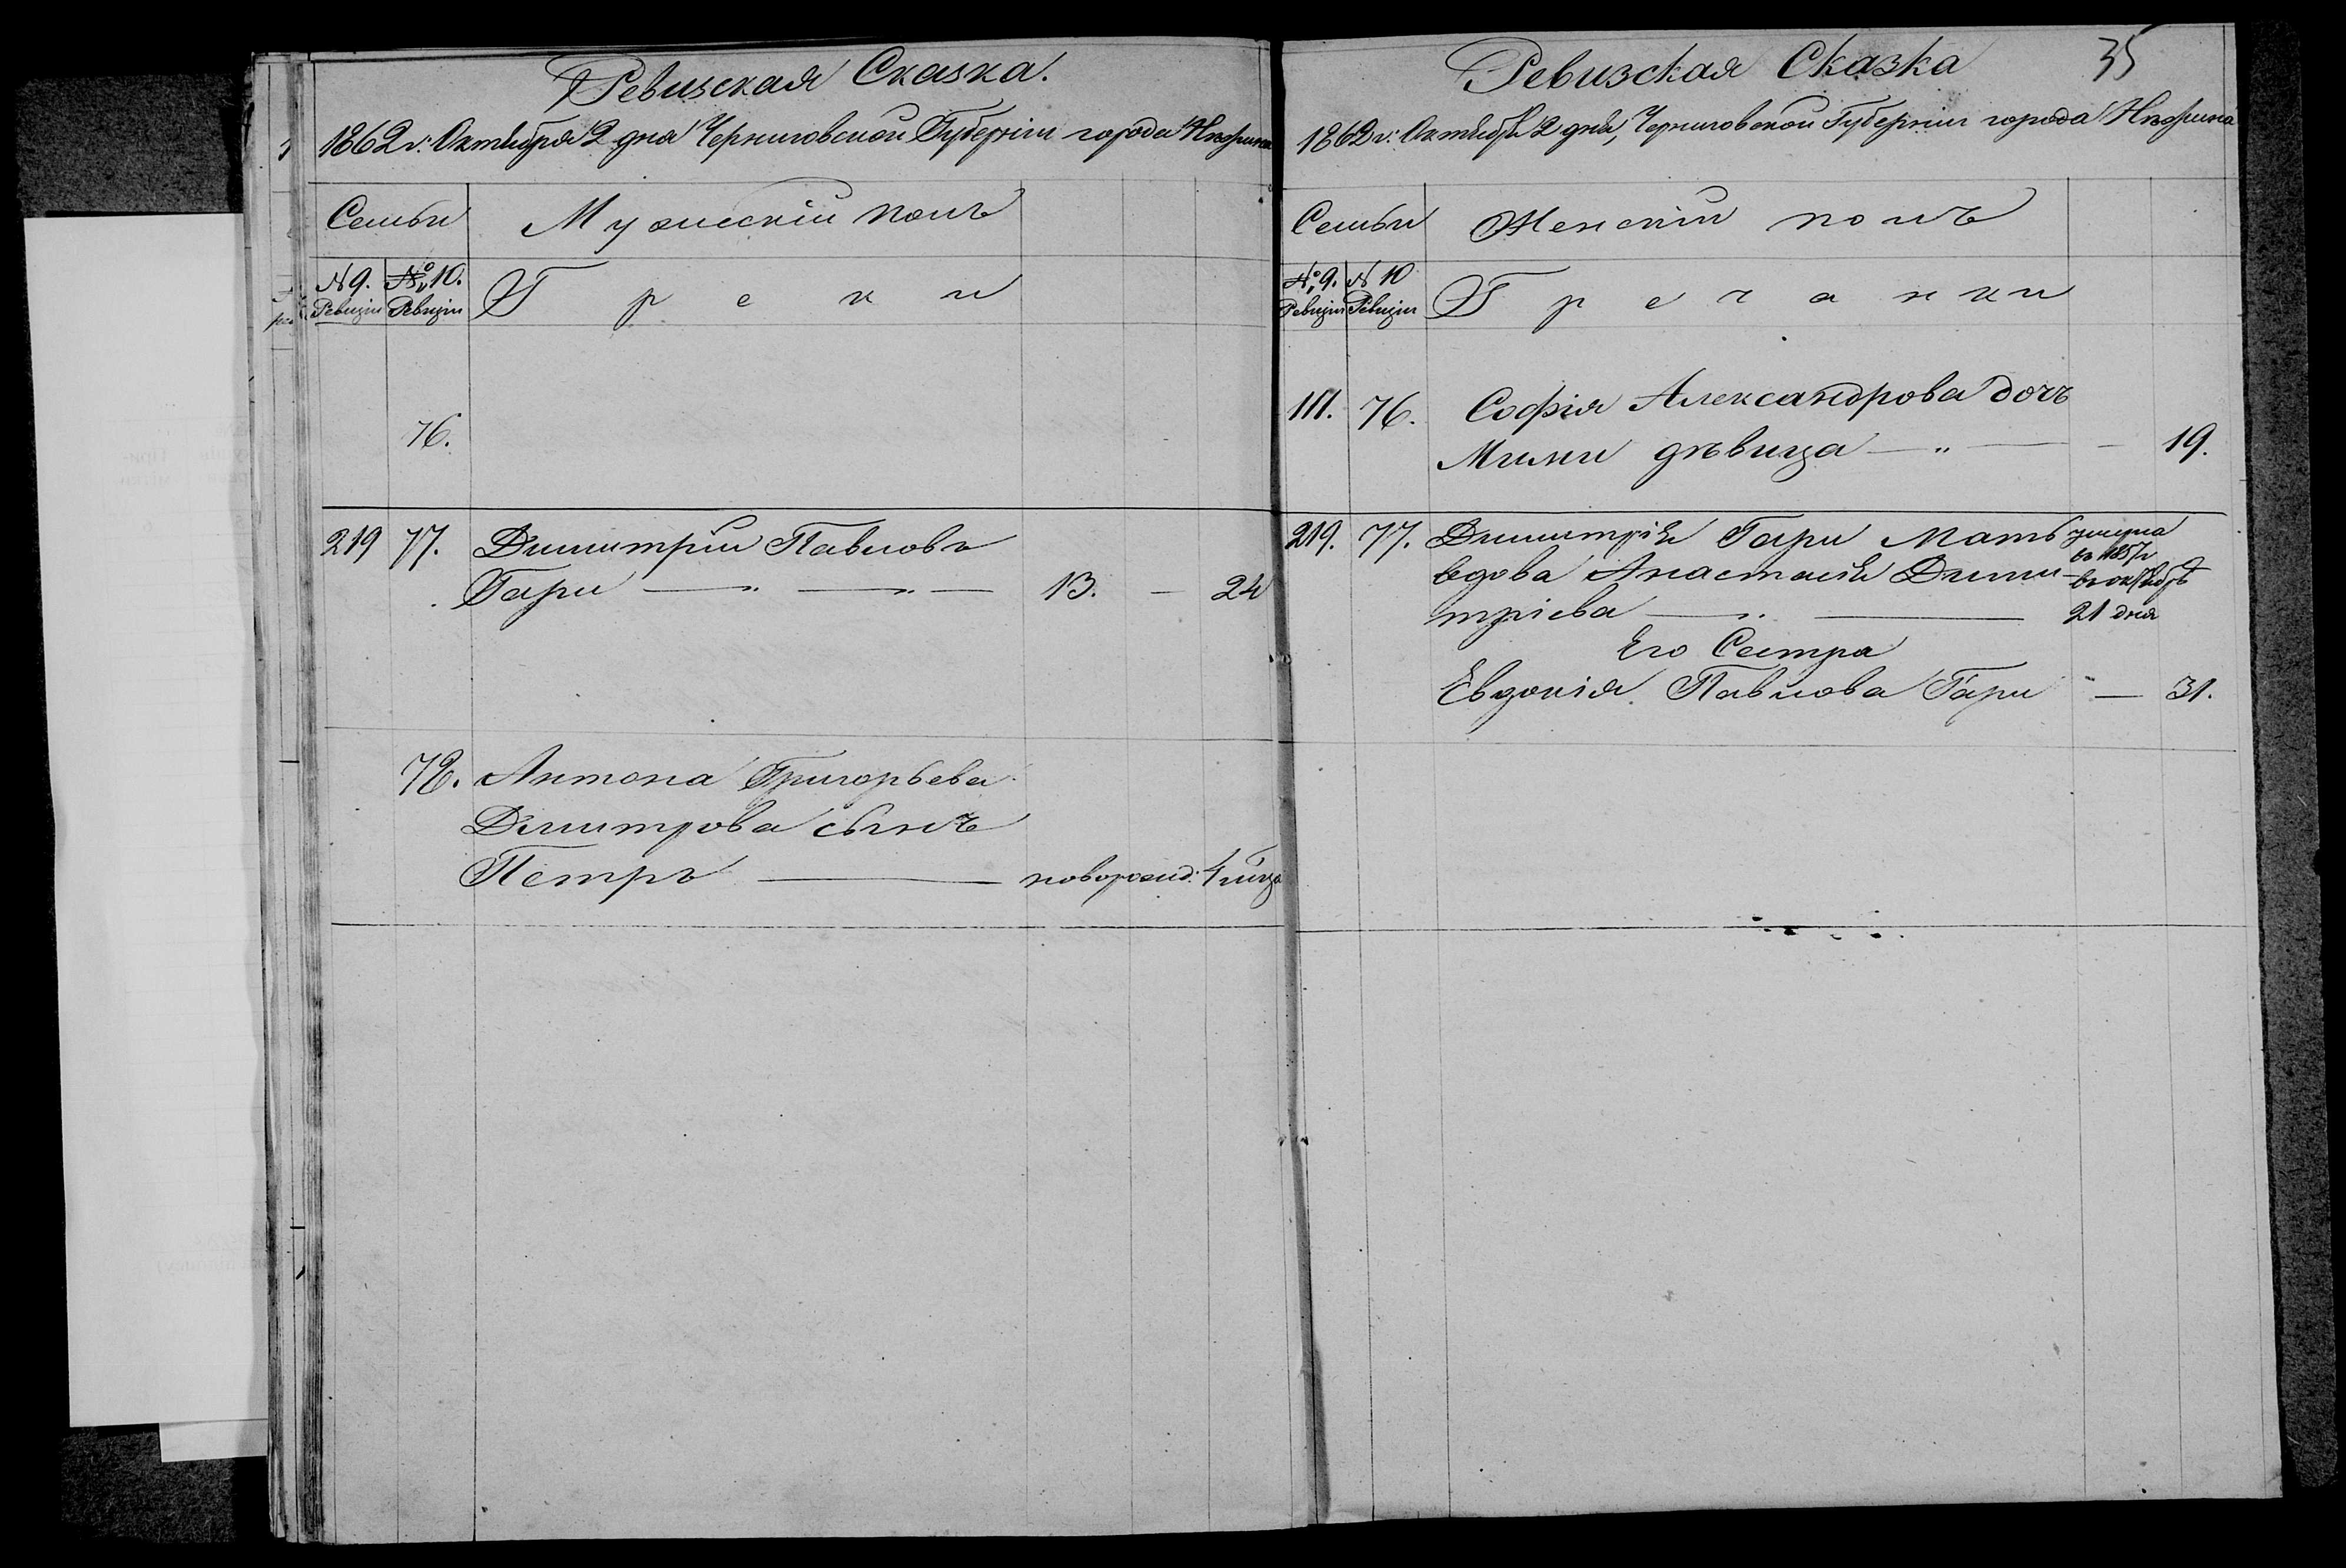 Ревизская Сказка.
1862 г: Октября 2 дня Черниговской Губерніи города Нѣжина
Семьи Мужескій полъ
№ 9. № 10.
Ревизіи Ревизіи Греки
76.
219 77. Димитрій Павловъ
Гари — „ — „ — 13. — 24
78. Антона Григорьева
Димитрова сынъ
Петръ — новорожд: 4 мѣца
Ревизская Сказка 35
1862 г: Октября 2 дня, Черниговской Губерніи города Нѣжина
Семьи Женскій полъ
№ 9. № 10
Ревизіи Ревизіи Гречанки
111. 76. Софія Александрова дочь
Мими дѣвица — „ — — 19.
219. 77. Димитрія Гари Мать умерла
въ 1857 г
вдова Анастасія Дими- въ октябрѣ
тріева — „ — 21 дня
Его Сестра
Евдокія Павлова Гари „ — 31.